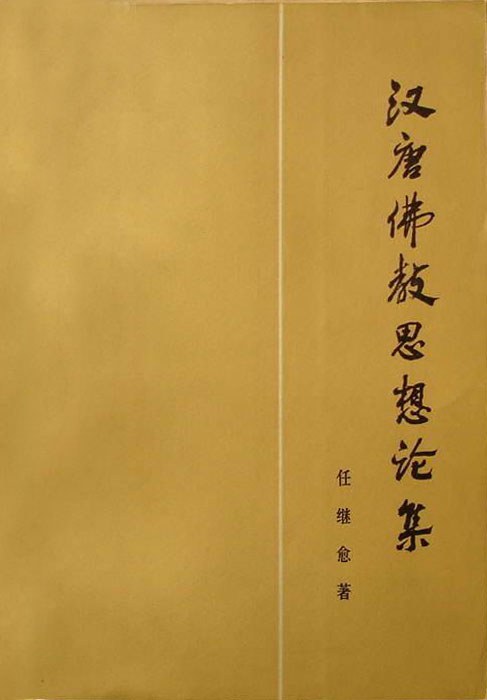 汉唐佛教思想论集
任继愈著